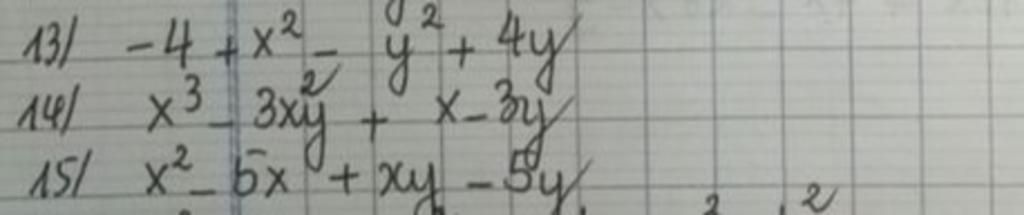 13/ -4 + x² - y² + 4y
14/ x³ - 3xy² + x - 3y
15/ x² - 5x + xy - 5y